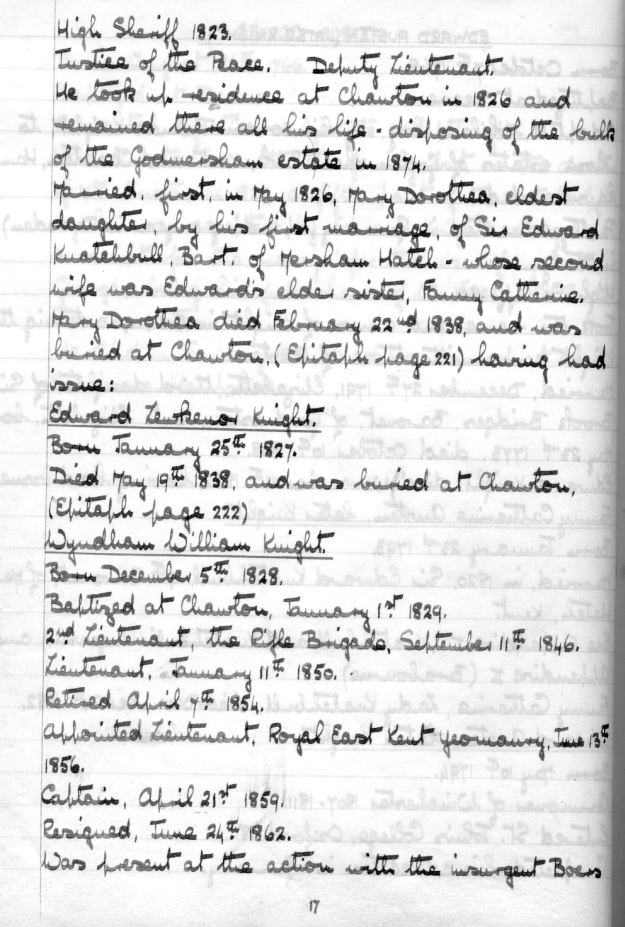 High Sheriff 1823.
Justice of the Peace. Deputy Lieutenant.
He took up residence at Chawton in 1826 and
remained there all his life - disposing of the bulk
of the Godmersham estate in 1874.
Married, first, in May 1826, Mary Dorothea, eldest
daughter, by his first marriage, of Sir Edward
Knatchbull, Bart. of Mersham Hatch - whose second
wife was Edward's elder sister, Fanny Catherine.
Mary Dorothea died February 22nd 1838, and was
buried at Chawton, (Epitaph page 221) having had
issue:
Edward Lewkenor Knight.
Born January 25th 1827.
Died May 19th 1838, and was buried at Chawton,
(Epitaph page 222)
Wyndham William Knight.
Born December 5th 1828.
Baptized at Chawton, January 1st 1829.
2nd Lieutenant, the Rifle Brigade, September 11th 1846.
Lieutenant, January 11th 1850.
Retired April 7th 1854.
Appointed Lieutenant, Royal East Kent Yeomanry, June 13th
1856.
Captain, April 21st 1859.
Resigned, June 24th 1862.
Was present at the action with the insurgent Boers
17